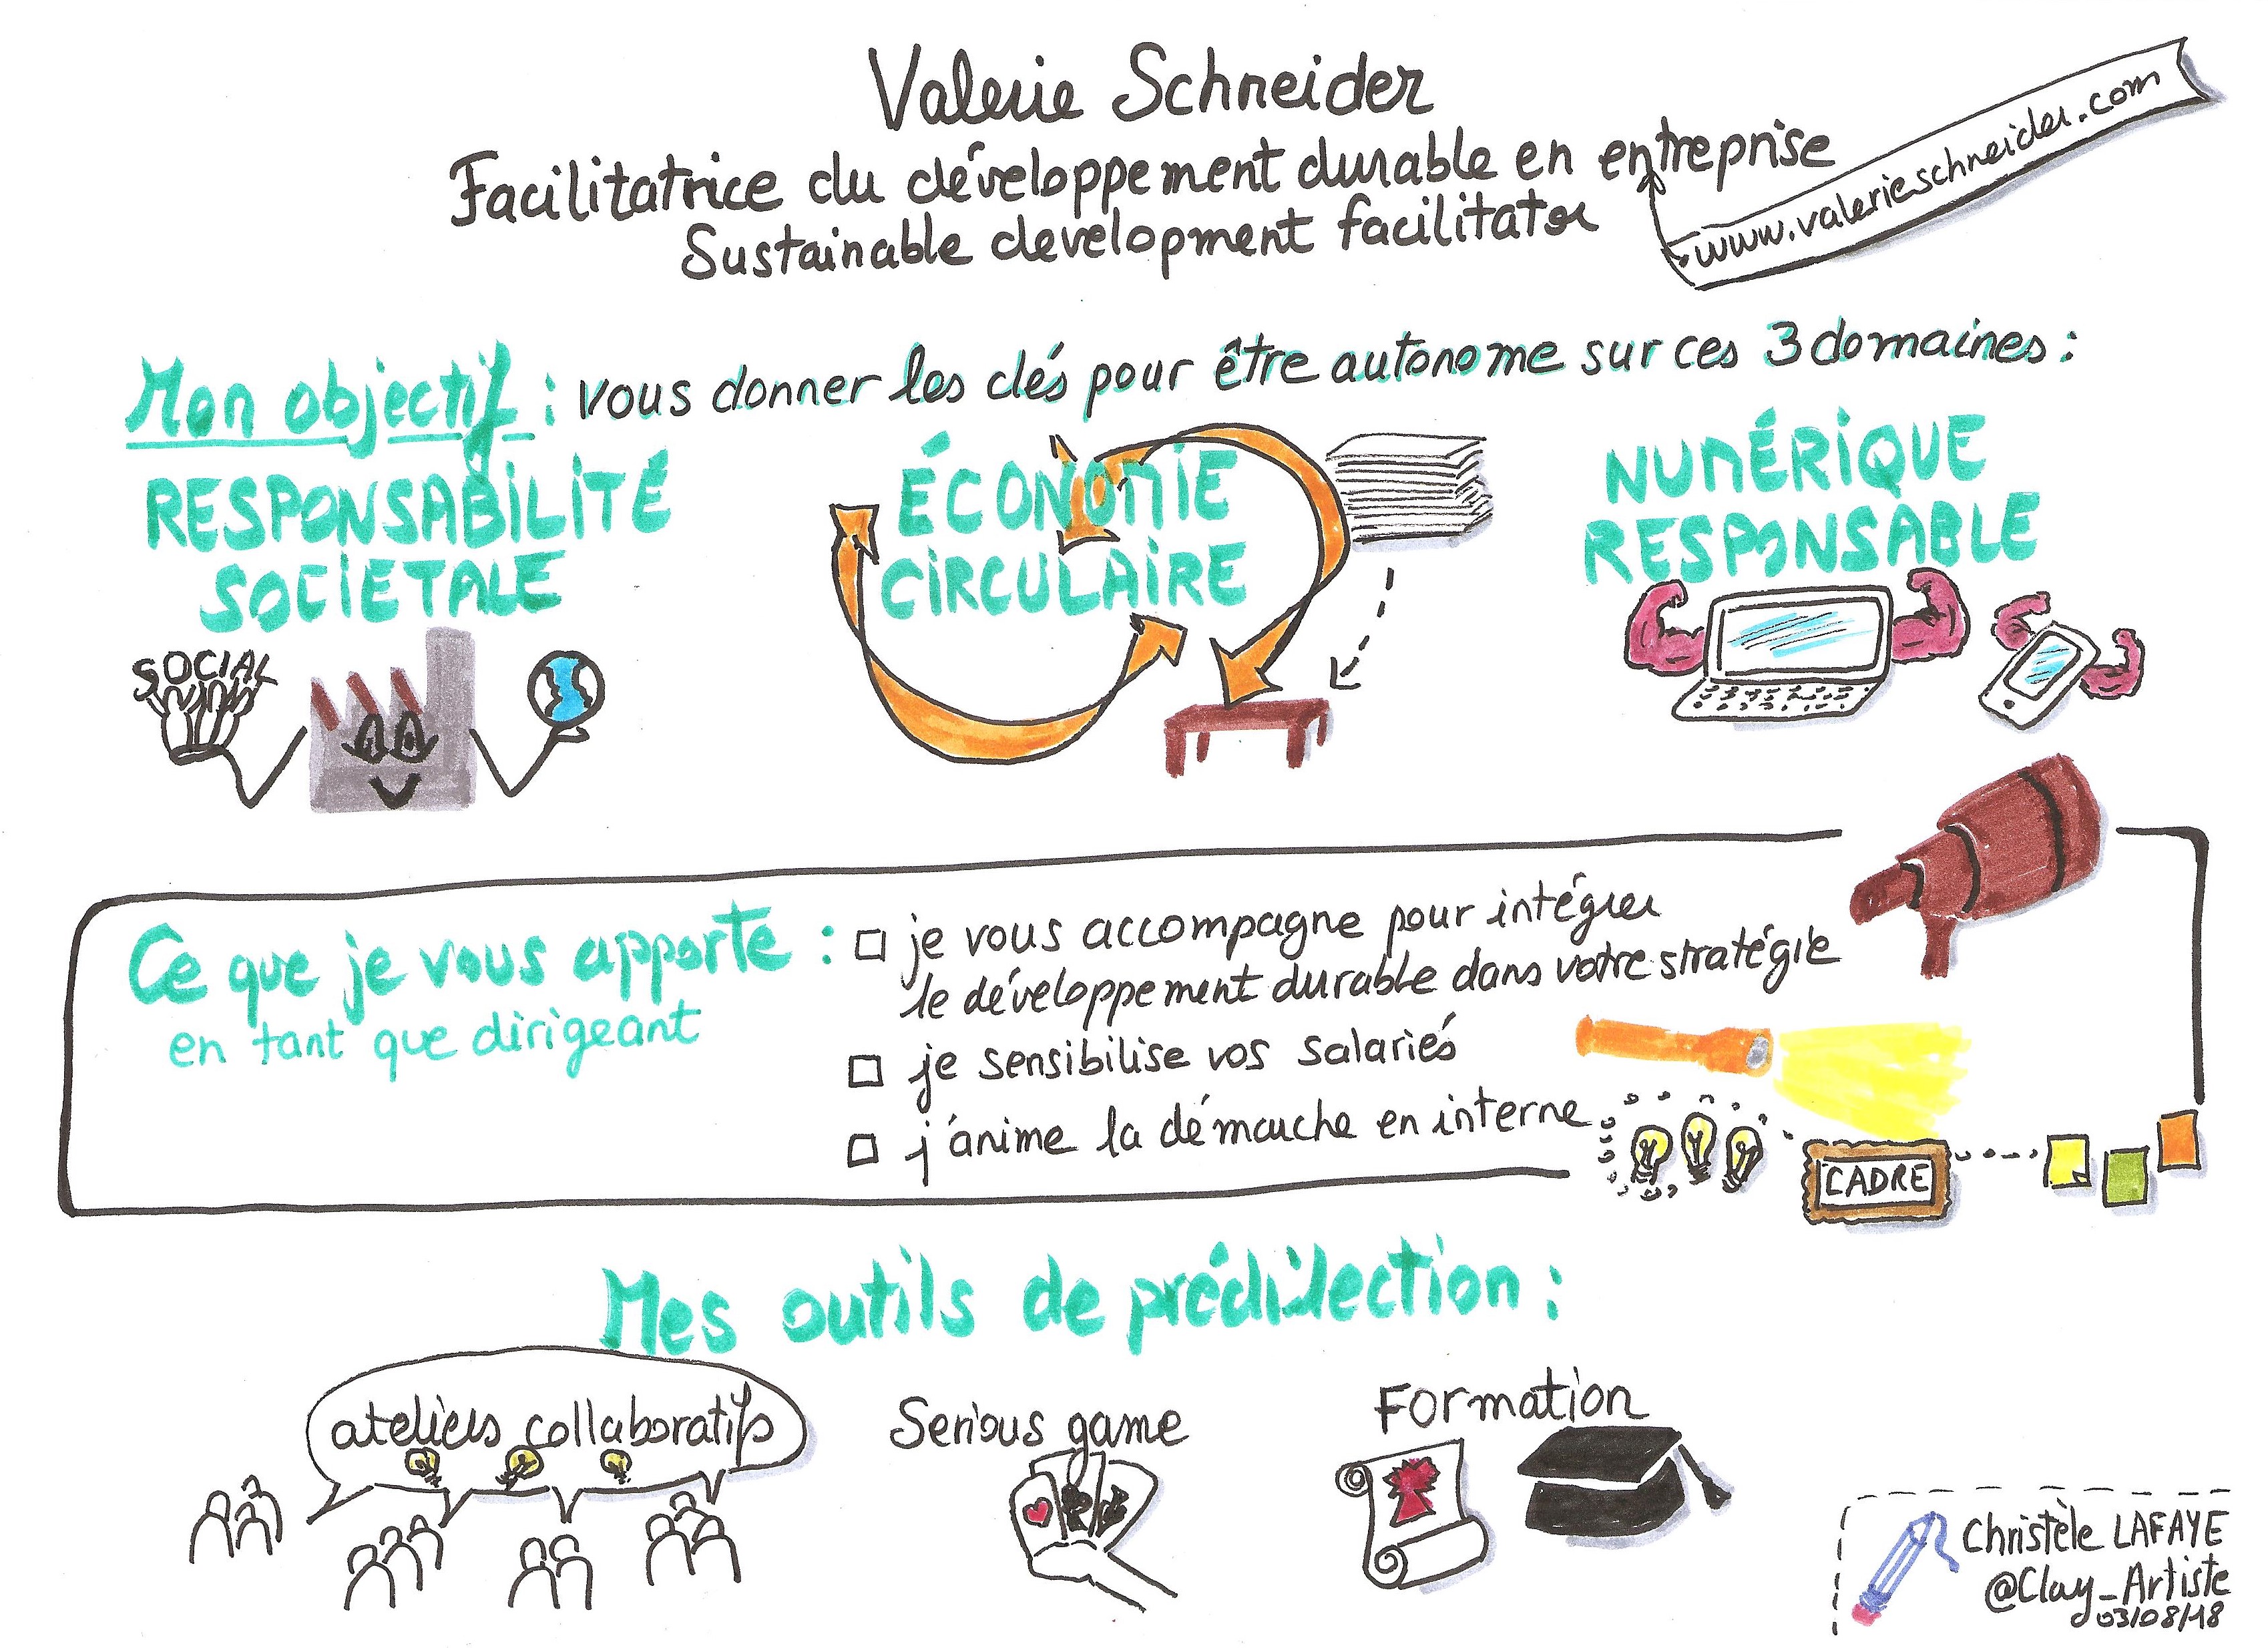 Valerie Schneider
Facilitatrice du développement durable en entreprise
Sustainable development facilitator
www.valerieschneider.com
Mon objectif : vous donner les clés pour être autonome sur ces 3 domaines :
RESPONSABILITÉ
SOCIETALE
SOCIAL
ÉCONOMIE
CIRCULAIRE
NUMÉRIQUE
RESPONSABLE
Ce que je vous apporte :
en tant que dirigeant
je vous accompagne pour intégrer
le développement durable dans votre stratégie
je sensibilise vos salariés
j'anime la démarche en interne
CADRE
Mes outils de prédilection :
ateliers collaboratifs
Serious game
Formation
Christèle LAFAYE
@Clay_Artiste
03/08/18